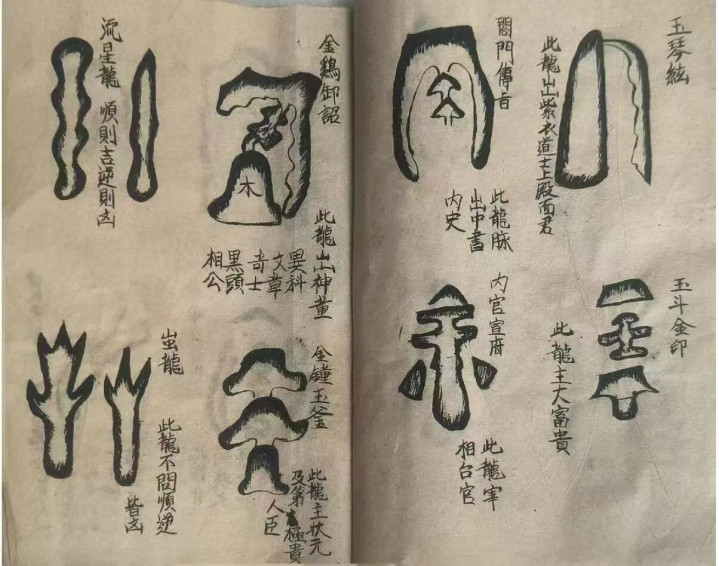 玉琴絃
此龍出紫衣道士上殿面君
閣門傳旨
此龍脉
出中書
内史
玉斗金印
此龍主大富貴
内官宣府
此龍宰
相台官
金鷄卸詔
木
此龍出神童
異科
文章
奇士
黑頭
相公
流星龍 順則吉逆則凶
金鐘玉釜
此龍主狀元
及第 極貴
人臣
此龍不問順逆
皆凶